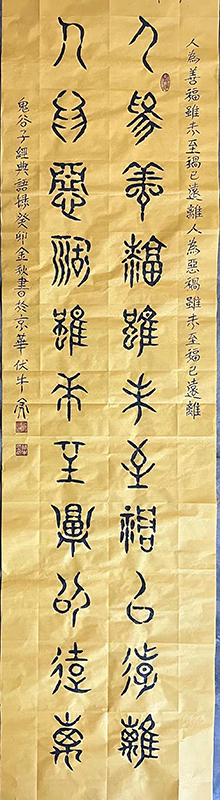 人為善福雖未至禍已遠離人為惡禍雖未至福已遠離
人為善福雖未至禍已遠離
人為惡禍雖未至福已遠離
鬼谷子經典語錄癸卯金秋書於京華伏牛